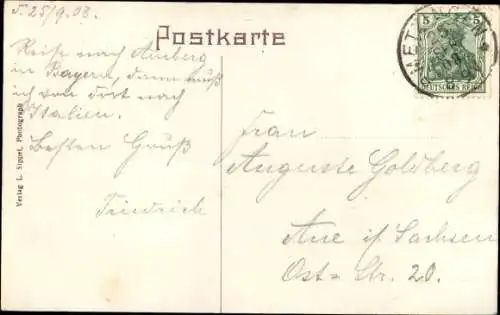 T. 25/9.08.
Postkarte
Reise nach Amberg
in Bayern, dann muß
ich von dort nach
Italien.
Besten Gruß
Friedrich
Verlag L. Sippel, Photograph
5 5
DEUTSCHES REICH
Frau
Auguste Goldberg
Aue i/ Sachsen
Ost-Str. 20.